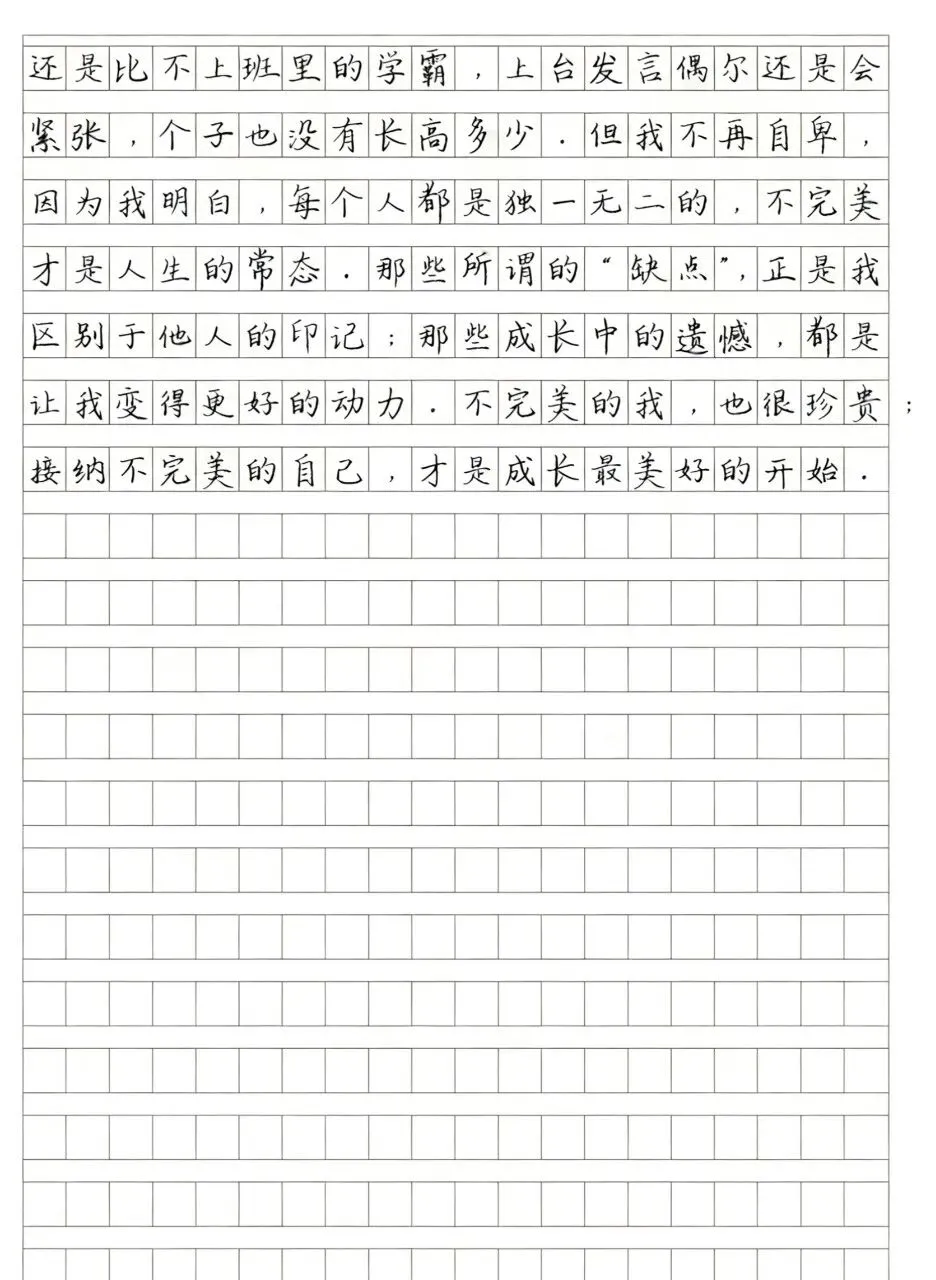 还是比不上班里的学霸,上台发言偶尔还是会
紧张,个子也没有长高多少.但我不再自卑,
因为我明白,每个人都是独一无二的,不完美
才是人生的常态.那些所谓的“缺点”,正是我
区别于他人的印记;那些成长中的遗憾,都是
让我变得更好的动力.不完美的我,也很珍贵;
接纳不完美的自己,才是成长最美好的开始.